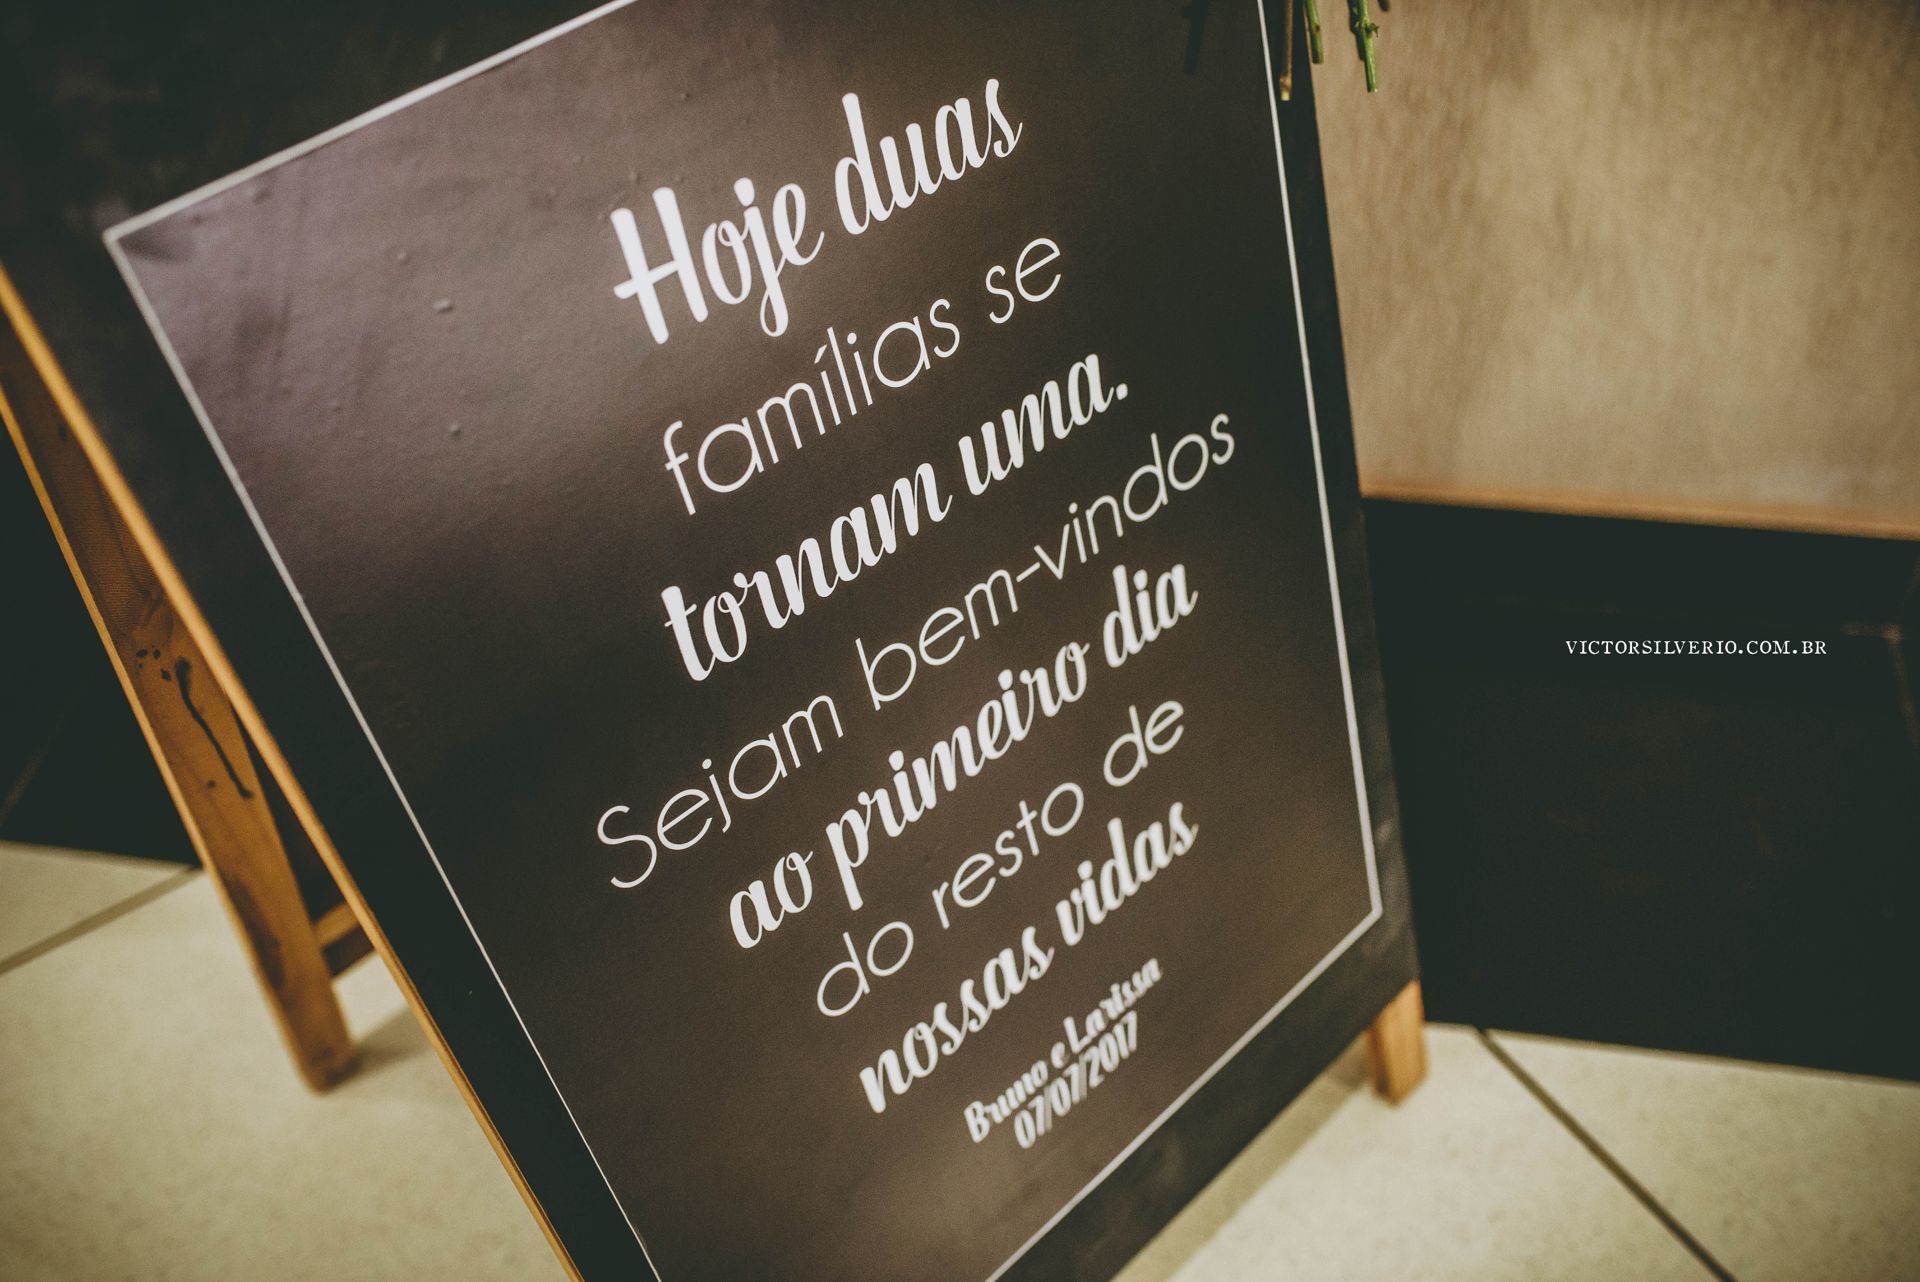 Hoje duas
famílias se
tornam uma.
Sejam bem-vindos
ao primeiro dia
do resto de
nossas vidas
Bruno e Larissa
07/07/2017
VICTORSILVERIO.COM.BR